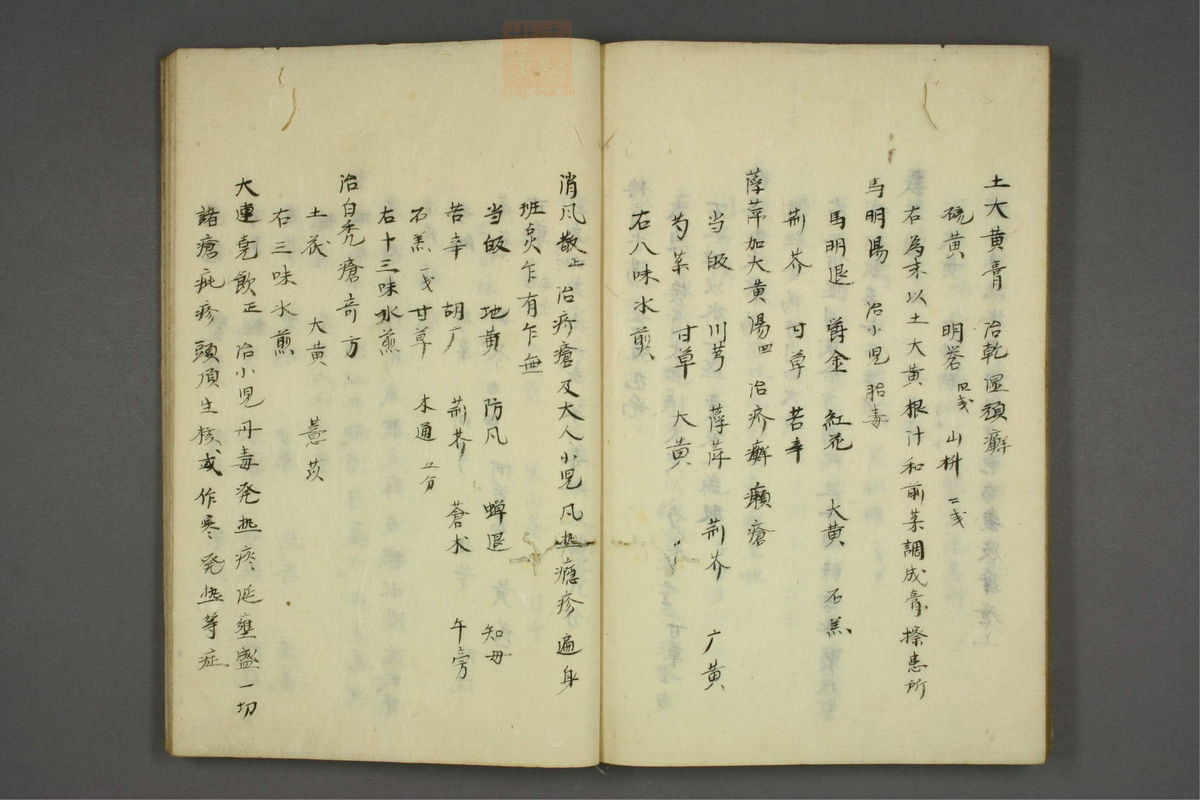 土大黄膏 治乾湿頑癬
硫黄 明礬四戔 山椒二戔
右為末以土大黄根汁和前藥調成膏擦患所
馬明湯 治小児胎毒
馬明退 欝金 紅花 大黄 石羔
荊芥 甘草 苦辛
萍加大黄湯四 治疥癬癩瘡
当皈 川芎 萍 荊芥 广黄
芍薬 甘草 大黄
右八味水煎
消凡散正 治疥瘡及大人小児凡热瘾疹遍身
班炎乍有乍無
当皈 地黄 防凡 蝉退 知母
苦辛 胡广 荊芥 蒼朮 午旁
石羔一戔 甘草 木通五分
右十三味水煎
治白禿瘡奇方
土茯 大黄 薏苡
右三味水煎
大連尭飲正 治小児丹毒発热痰涎壅盛一切
諸瘡疵疹頭頂生核或作寒発热等症